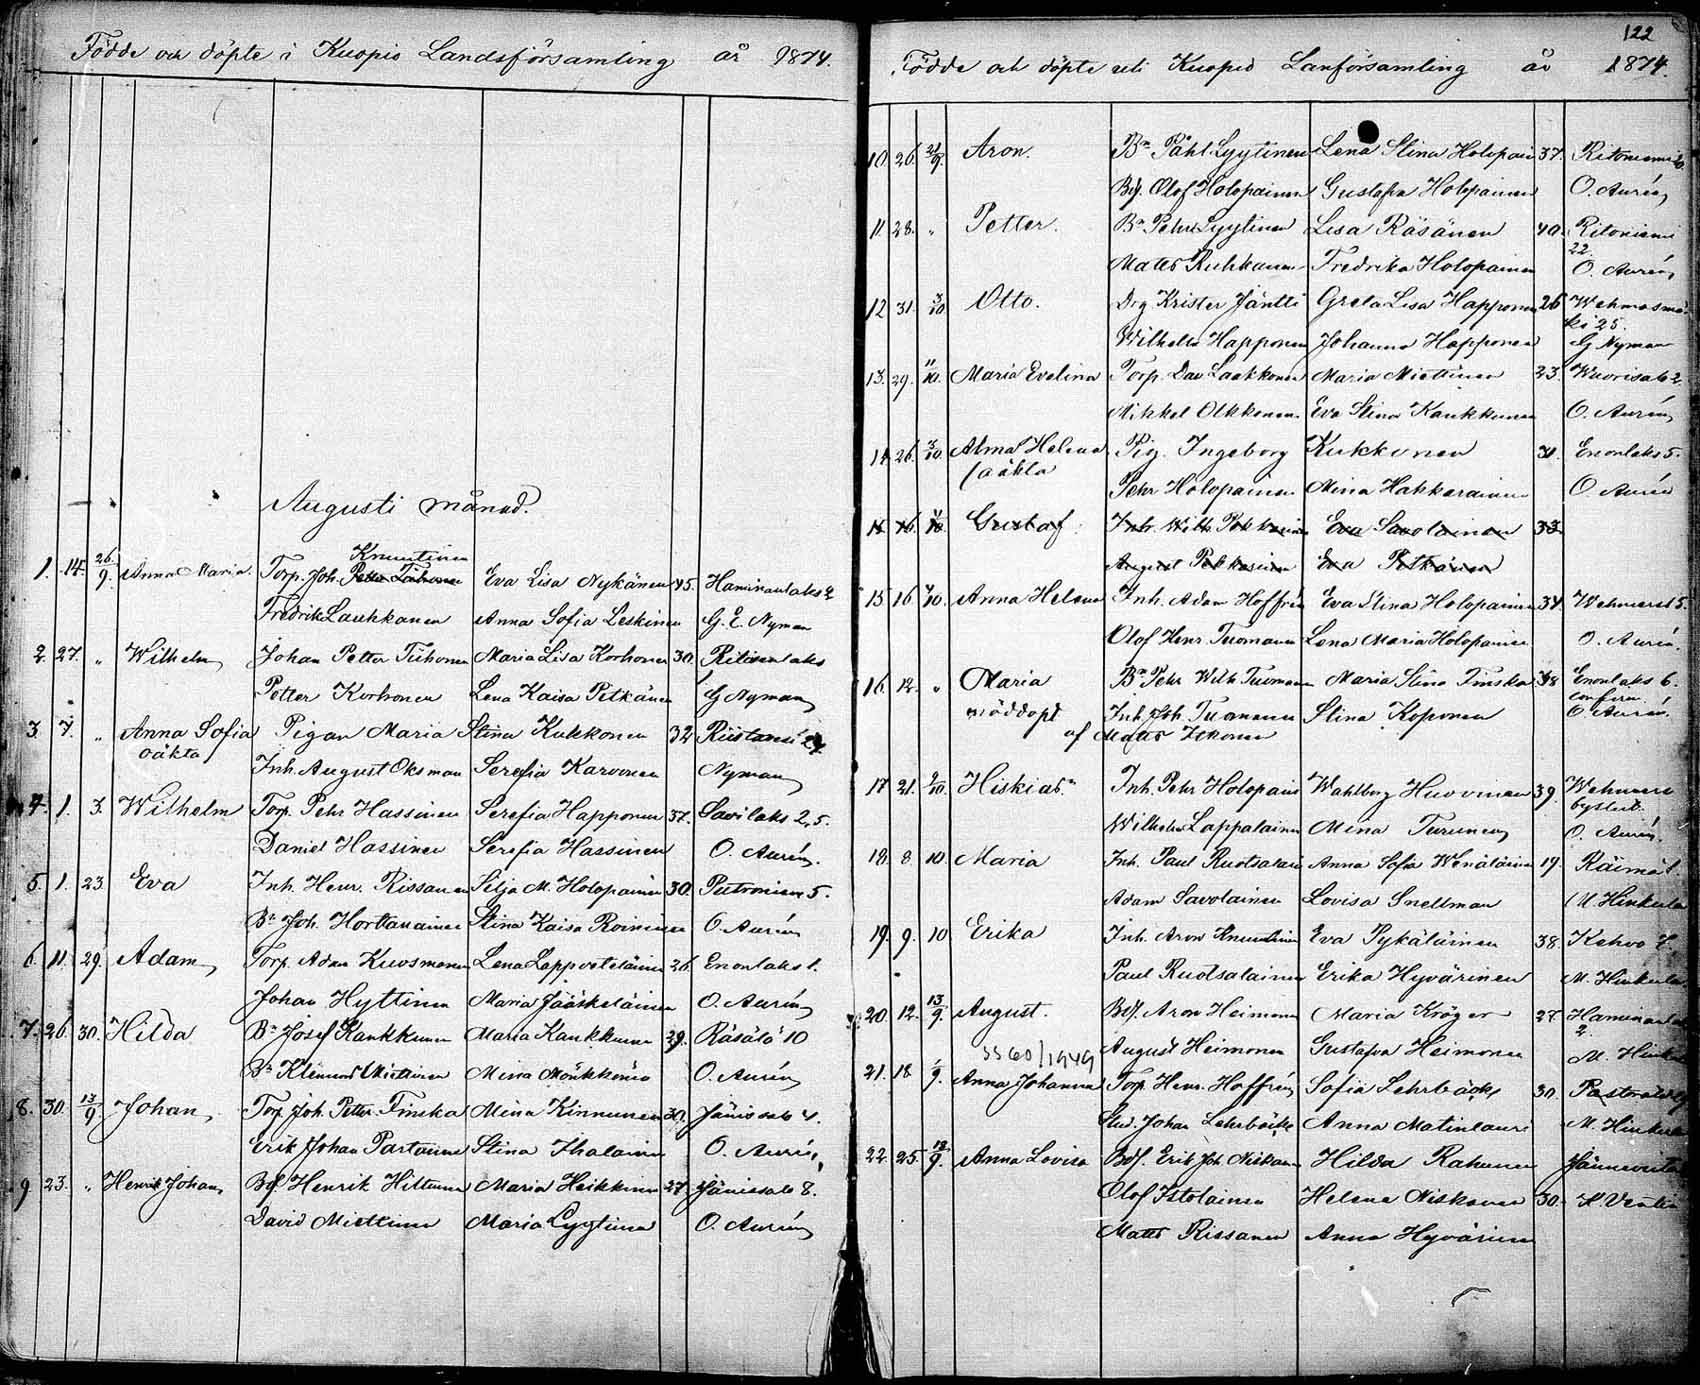 Födde och döpte i Kuopio Landsförsamling år 1874.
Augusti månad.
1. 14. 26/9. Anna Maria. Torp. Joh. Petter Tiihonen Knuutinen Eva Lisa Nykänen 45. Haminanlaks 2
Fredrik Laukkanen Anna Sofia Leskinen G. E. Nyman
2. 27. " Wilhelm Johan Petter Tiihonen Maria Lisa Korhonen 30.
Petter Korhonen Lena Kaisa Pitkänen G Nyman
3. 7. " Anna Sofia Pigan Maria Stina Kukkonen 32
oäkta
Inh. August Oksman Serefia Karvonen Nyman
4. 1. 3. Wilhelm Torp. Pehr Hassinen Serefia Happonen 37. Savilaks 2,5.
Daniel Hassinen Serefia Hassinen O. Aurén.
5. 1. 23. Eva Inh. Henr. Rissanen Silja M. Holopainen 30. 5.
Bn Joh. Hortanainen Stina Kaisa Roininen O. Aurén
6. 11. 29. Adam Torp. Adam Kuosmanen Lena Lappveteläinen 26. Enonlaks 1.
Johan Hyttinen Maria Jääskeläinen O. Aurén
7. 26. 30. Hilda Bn Josef Kaukkunen Maria Kaukkunen 29. Räsälä 10
Bn Klemund Miettinen Miina Mönkkönen O. Aurén
8. 30. 13/9 Johan Torp. Joh. Petter Finska Mina Kinnunen 30. Jänissalo 4.
Erik Johan Partanen Stina Ihalainen O. Aurén
9. 23. " Henrik Johan Bdf. Henrik Hiltunen Maria Heikkinen 27. Jänissalo 8.
David Miettinen Maria Lyytinen O. Aurén
122
Födde och döpte uti Kuopio Lanförsamling år 1874.
10. 26. 21/9. Aron. Bn Påhl Lyytinen Lena Stina Holopain 37. Ritoniemi 6.
Bdf. Olof Holopainen Gustafva Holopainen O. Aurén
11. 28. " Petter. Bn Pehr Lyytinen Lisa Räsänen 40. Ritoniemi
22.
Matts Ruhkanen Fredrika Holopainen O. Aurén
12 31. 3/10. Otto. Drg Krister Jäntti Greta Lisa Happonen 26 Wehmasmä-
ki 25.
Wilhelm Happonen Johanna Happonen G Nyman
13. 29. 11/10. Maria Evelina Torp. Dav Laakkonen Maria Miettinen 23. Wuorisalo 2.
Mikkel Olkkonen. Eva Stina Kaukkunen O. Aurén
14 26. 3/10. Alma Helena Pig. Ingeborg Kukkonen Enonlaks 5.
oäkta
Pehr Holopainen Mina Hakkarainen O. Aurén
15 16. Gustaf Inh. Wilh. Pekkarinen Eva Savolainen 33
August Pekkarinen Eva Pitkänen
15 16 4/10. Anna Helena Inh. Adam Hoffrén Eva Stina Holopainen 34. 5.
Olof Henr. Tuomanen Lena Maria Holopainen O. Aurén.
16. 12. " Maria Bn Pehr Wilh Tuomanen Maria Stina Finska 38 Enonlaks 6.
nöddöpt Inh. Joh. Tuomanen Stina Koponen O Aurén.
af Matts Itkonen
17 21. Hiskias. Inh. Pehr Holopain Wahlborg Huovinen 39.
Wilhelm Lappalainen Mina Turunen O. Aurén.
18. 8 10. Maria Inh. Paul Ruotsalain Anna Sofia Wenäläinen 19. Räimä 1.
Adam Savolainen Lovisa Snellman M. Hinkula
19. 9. 10 Erika Inh. Aron Knuutinen Eva Pykäläinen 38. Kehvo 7.
Paul Ruotsalainen Erika Hyvärinen M. Hinkula
20 12. 13/9. August. Bdf. Aron Heimonen Maria Kröger 27
2.
August Heimonen Gustafva Heimonen M. Hinkula
3360/1949
21. 18 /9. Anna Johanna Torp. Henr. Hoffrén Sofia Lehrbäck 30.
Stud. Johan Lehrbäck Anna Matinlauri M. Hinkula
22 25. 13/9. Anna Lovisa Bdf. Erik Joh Niskanen Hilda Rahunen
Olof Istolainen Helena Niskanen 30.
Matts Rissanen Anna Hyvärinen